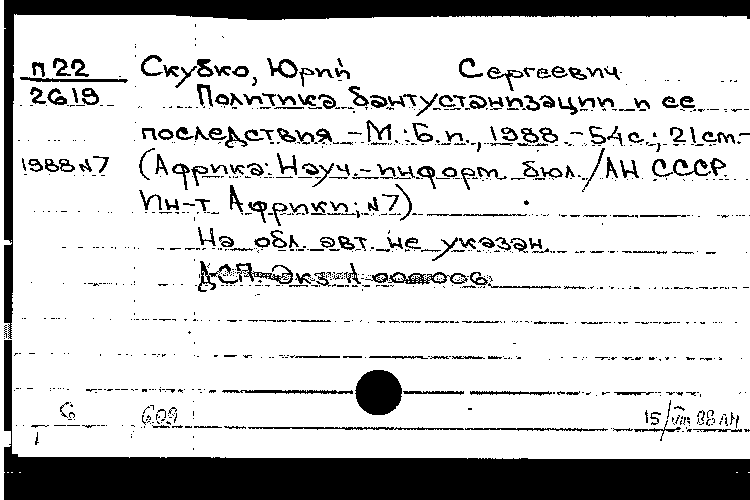 П22
2619
1988 N7
Скубко, Юрий Сергеевич
Политика бантустанизации и ее
последствия. - М.: Б.и., 1988. - 54с.; 21см. -
(Африка: Науч.-информ. бюл. / АН СССР
Ин-т Африки; N7)
На обл. авт. не указан.
ДСП. Экз. А 000006
6 609 15/VIII 88 АН